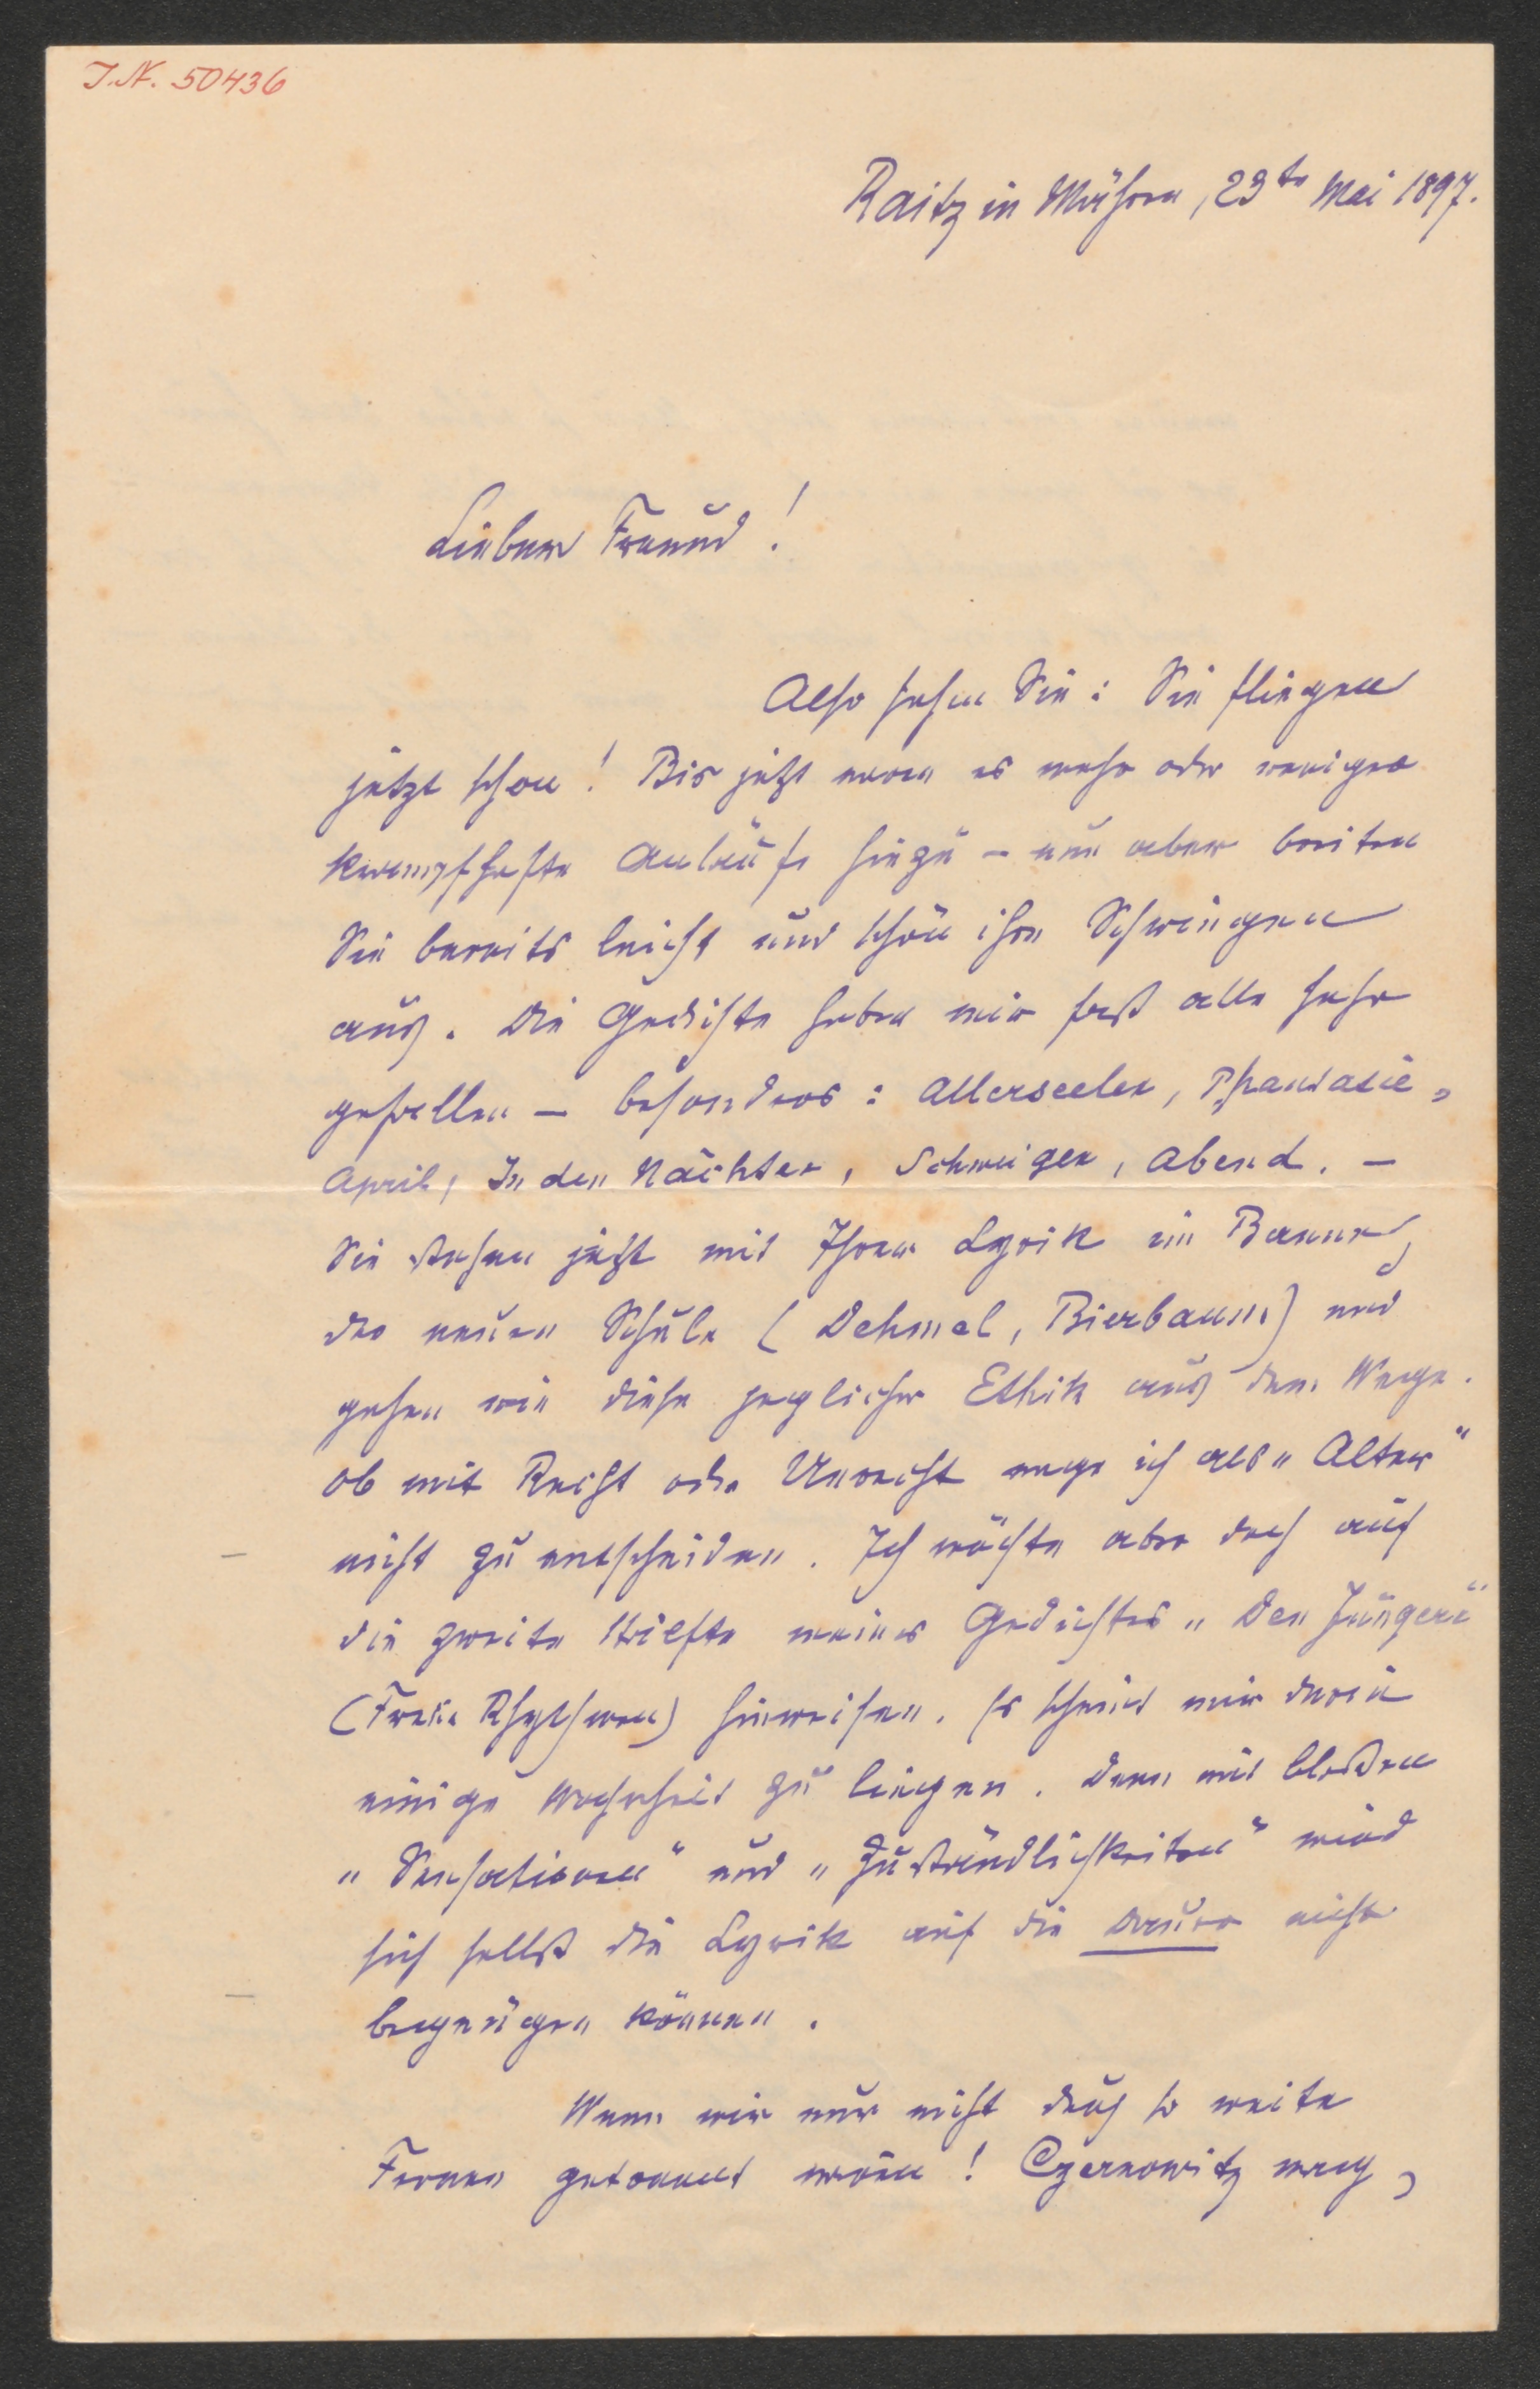 J.N. 50436
Raitz in Mähren, 23te Mai 1897.
Lieber Freund!
Also sehen Sie: Sie fliegen
jetzt schon! Bis jetzt waren es mehr oder weniger
krampfhafte Anläufe hiezu – nun aber breiten
Sie bereits leicht und schön ihre Schwingen
aus. Die Gedichte haben mir fast alle sehr
gefallen – besonders: Allerseelen, Phantasie,
April, In den Nächten, Schweigen, Abend. –
Sie stehen jetzt mit Ihrer Lyrik im Banne
der neuen Schule (Dehmel, Bierbaum) und
gehen wie diese jeglicher Ethik aus dem Wege.
Ob mit Recht oder Unrecht wage ich als „Alter"
nicht zu entscheiden. Ich möchte aber doch auf
die zweite Hälfte meines Gedichtes „Den Jüngern"
(Freie Rhythmen) hinweisen. Es scheint mir darin
einige Wahrheit zu liegen. Denn mit bloßen
„Sensationen" und „Zuständlichkeiten" wird
sich selbst die Lyrik auf die Dauer nicht
begnügen können.
Wenn wir nur nicht durch so weite
Fernen getrennt wären! Czernowitz mag,